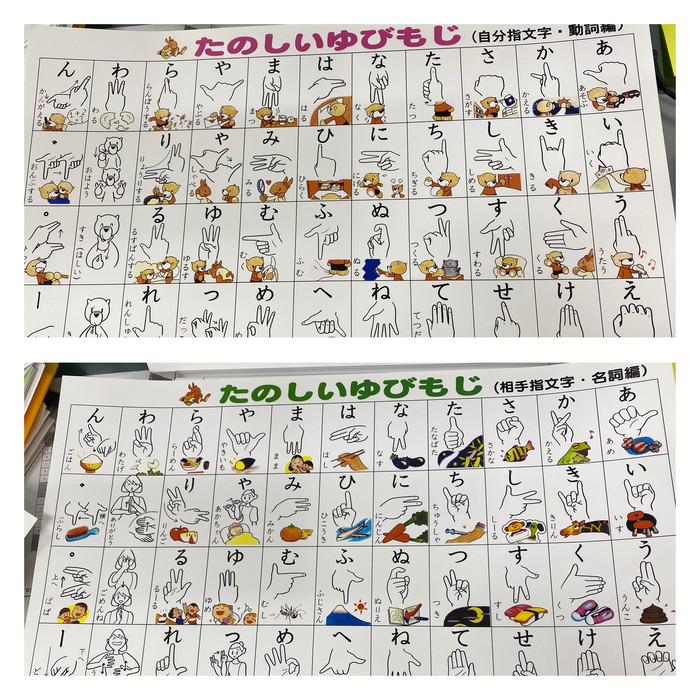 たのしいゆびもじ（自分指文字・動詞編）
あ
あそぶ
い
いく
う
うたう
え
か
かえる
き
きる
く
くる
け
さ
さがす
し
しめる
す
すわる
せ
た
たつ
ち
ちぎる
つ
つくる
て
てつだ
な
なく
に
にげる
ぬ
ぬる
ね
は
はる
ひ
ひらく
ふ
ふむ
へ
ま
まつ
み
みる
む
め
や
やぶる
ゃ
しゃべる
ゆ
ゆるす
っ
だっ
ら
らんぼうする
り
りょうりする
る
るすばんする
れ
れんしゅ
わ
わる
おはよう
すき（ほしい）
き
ん
かんがえる
゛
おんぶする
゜
ー
たのしいゆびもじ（相手指文字・名詞編）
あ
あめ
い
いす
う
うんこ
え
か
かえる
き
きりん
く
くつ
け
さ
さかな
し
しーる
す
すし
せ
た
たなばた
ち
ちゅうしゃ
つ
つき
て
な
なす
に
にんじん
ぬ
ぬりえ
ね
は
はし
ひ
ひこうき
ふ
ふじさん
へ
ま
まま
み
みかん
む
むし
め
や
やきいも
ゃ
あかちゃん
ゆ
ゆめ
っ
ら
らーめん
り
りんご
る
るーる
れ
わ
わたげ
ありがとう
ごめんね
ん
はん
゛
ぶらし
横へ
゜
ぱぱ
上へ
ー
下